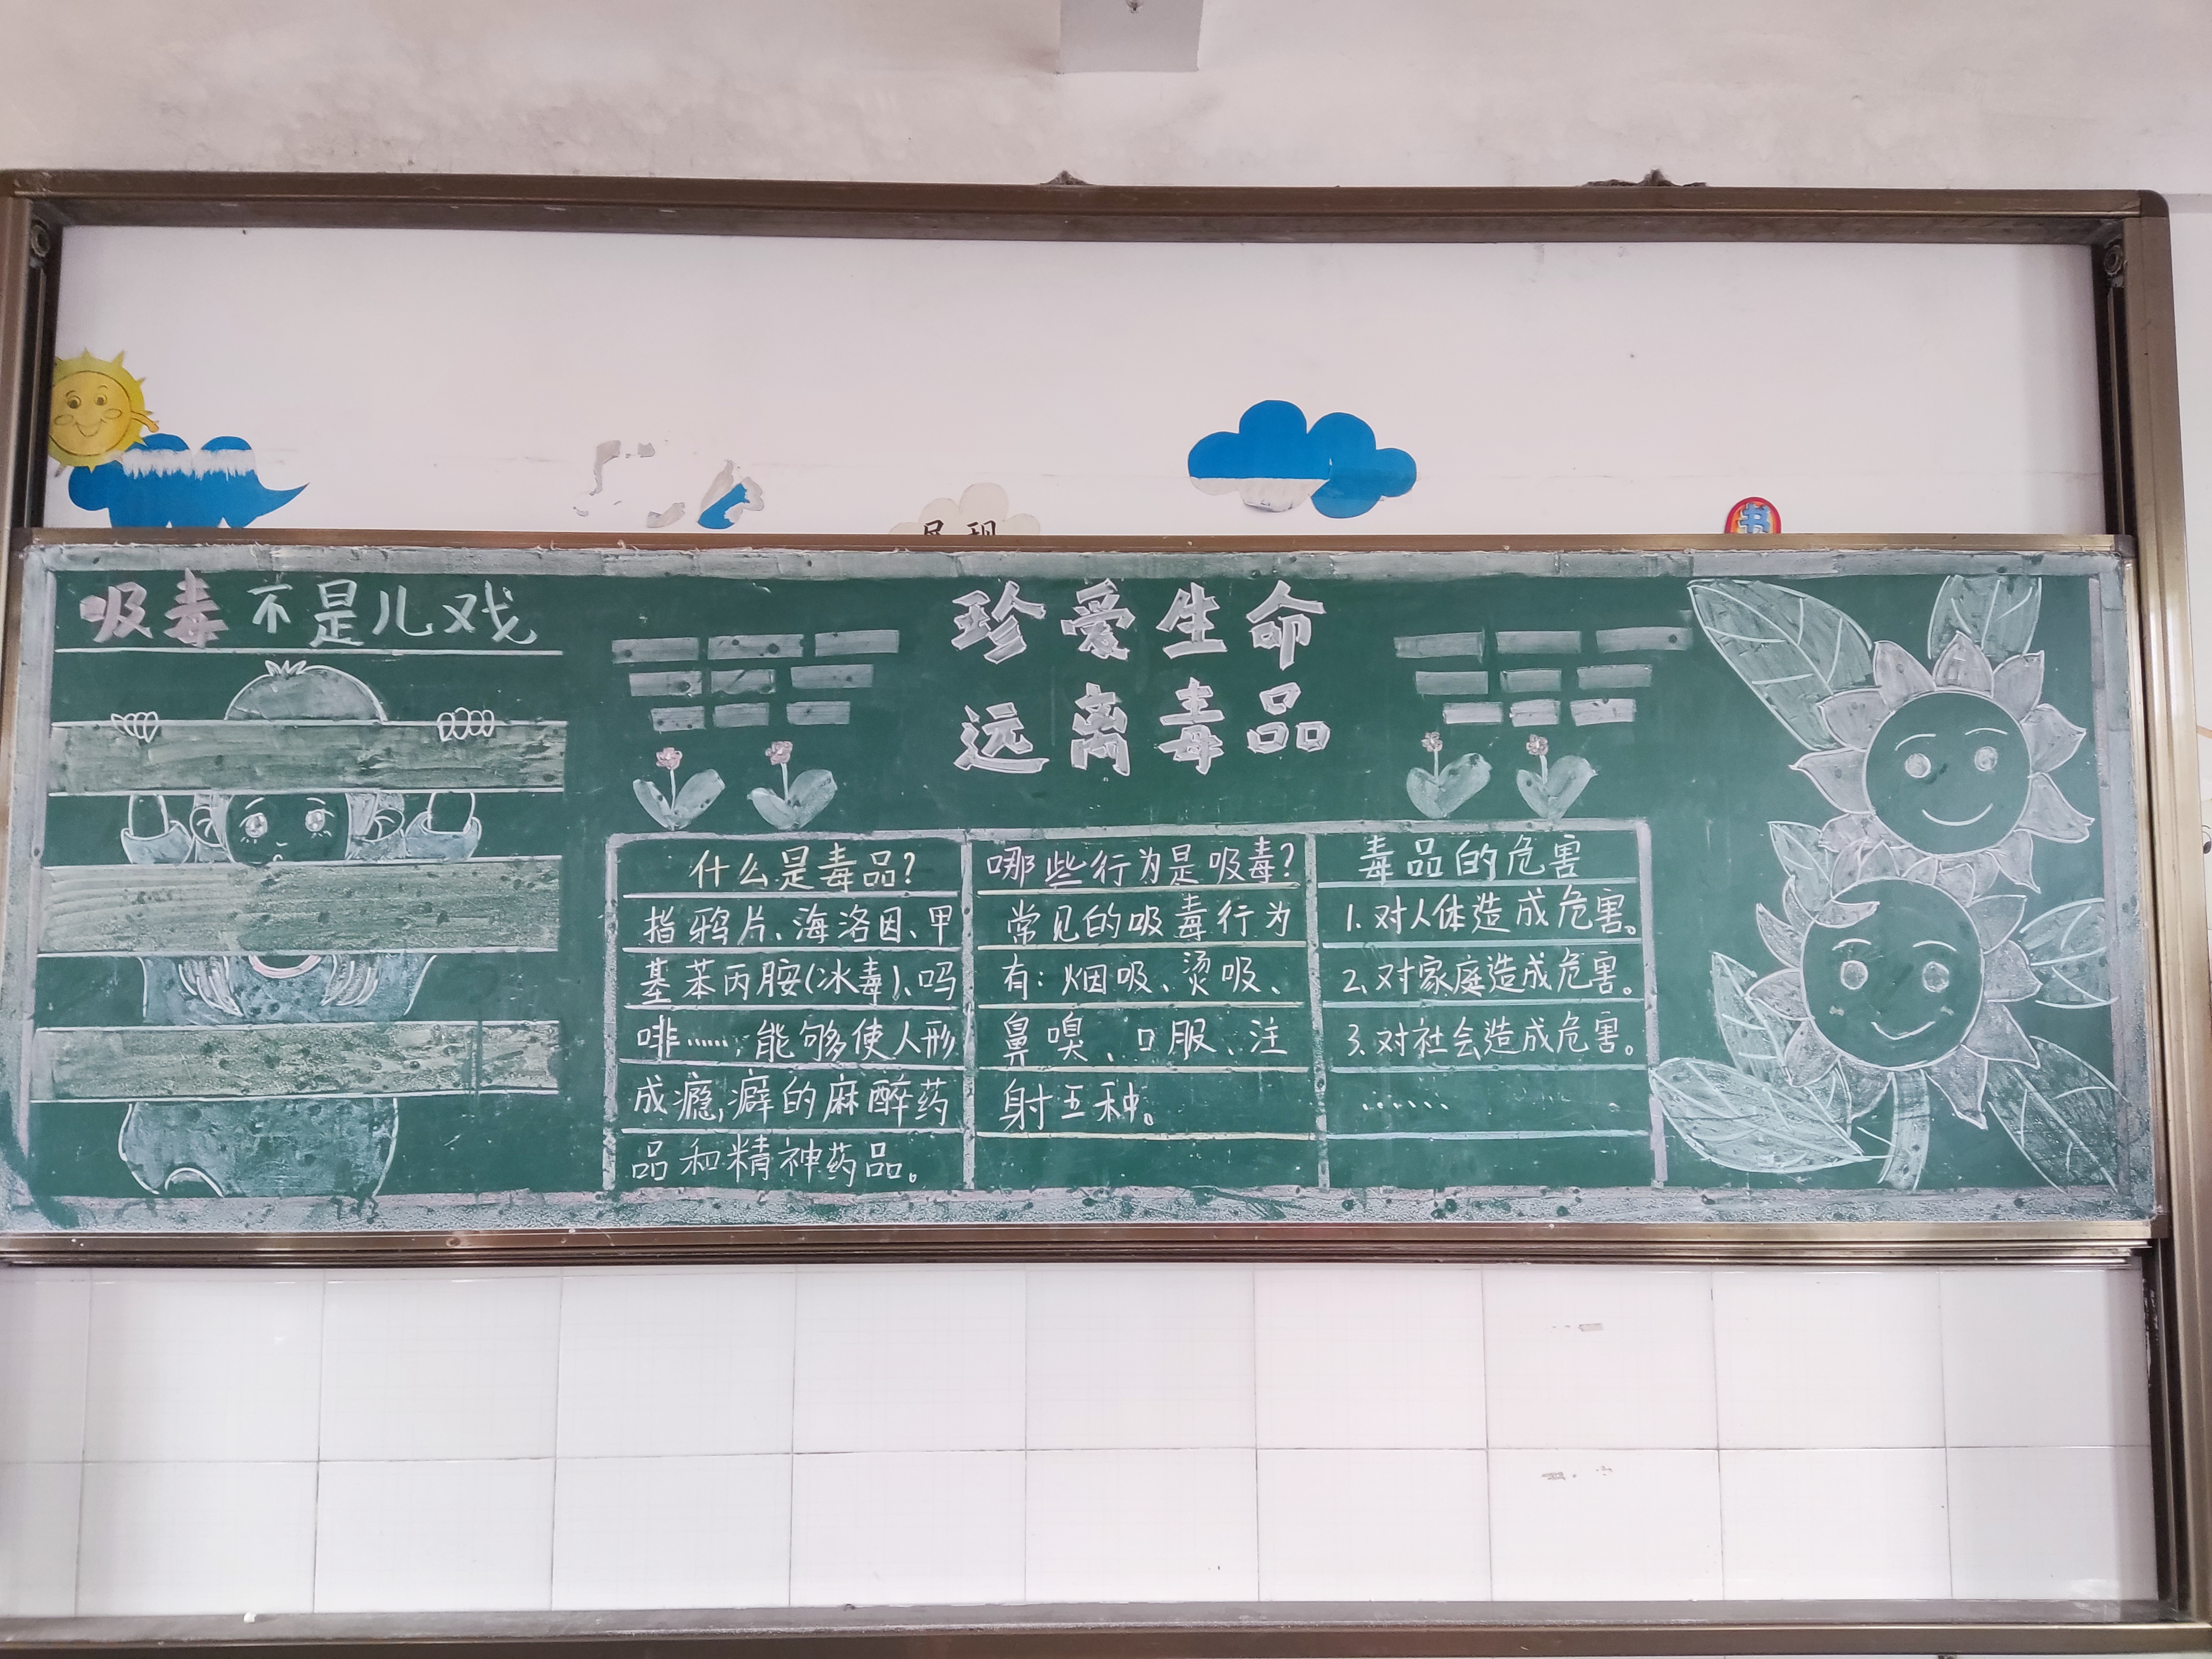 吸毒不是儿戏
珍爱生命
远离毒品
什么是毒品?
指鸦片、海洛因、甲
基苯丙胺(冰毒)、吗
啡……,能够使人形
成瘾,癖的麻醉药
品和精神药品。
哪些行为是吸毒?
常见的吸毒行为
有:烟吸、烫吸、
鼻嗅、口服、注
射五种。
毒品的危害
1.对人体造成危害。
2.对家庭造成危害。
3.对社会造成危害。
……